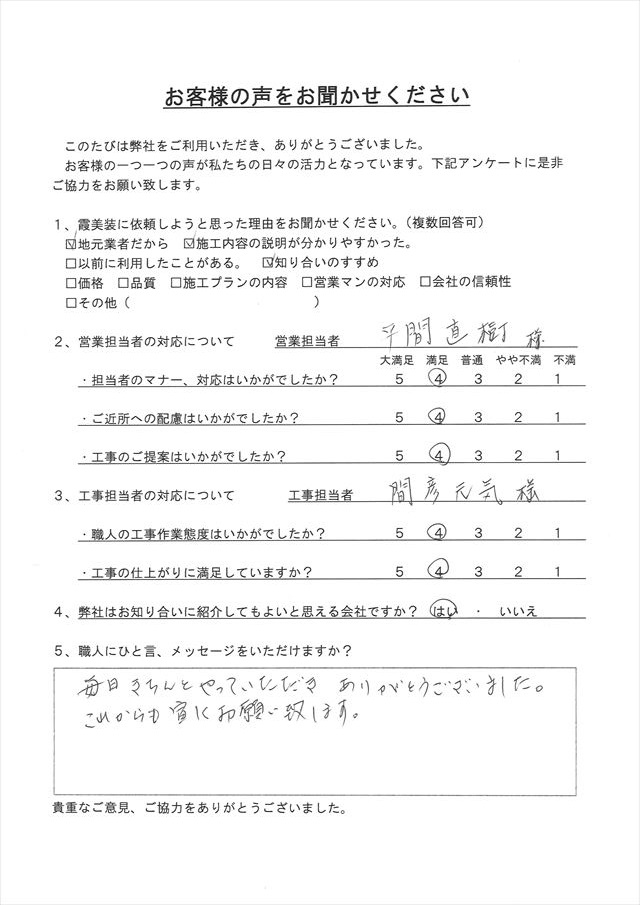 お客様の声をお聞かせください
このたびは弊社をご利用いただき、ありがとうございました。
お客様の一つ一つの声が私たちの日々の活力となっています。下記アンケートに是非
ご協力をお願い致します。
1、霞美装に依頼しようと思った理由をお聞かせください。（複数回答可）
☑地元業者だから ☑施工内容の説明が分かりやすかった。
□以前に利用したことがある。 ☑知り合いのすすめ
□価格 □品質 □施工プランの内容 □営業マンの対応 □会社の信頼性
□その他（ ）
2、営業担当者の対応について 営業担当者 平間直樹 様
大満足 満足 普通 やや不満 不満
・担当者のマナー、対応はいかがでしたか？ 5 4 3 2 1
・ご近所への配慮はいかがでしたか？ 5 4 3 2 1
・工事のご提案はいかがでしたか？ 5 4 3 2 1
3、工事担当者の対応について 工事担当者 間彦元気 様
・職人の工事作業態度はいかがでしたか？ 5 4 3 2 1
・工事の仕上がりに満足していますか？ 5 4 3 2 1
4、弊社はお知り合いに紹介してもよいと思える会社ですか？ はい ・ いいえ
5、職人にひと言、メッセージをいただけますか？
毎日きちんとやっていただき ありがとうございました。
これからも宜しくお願い致します。
貴重なご意見、ご協力をありがとうございました。